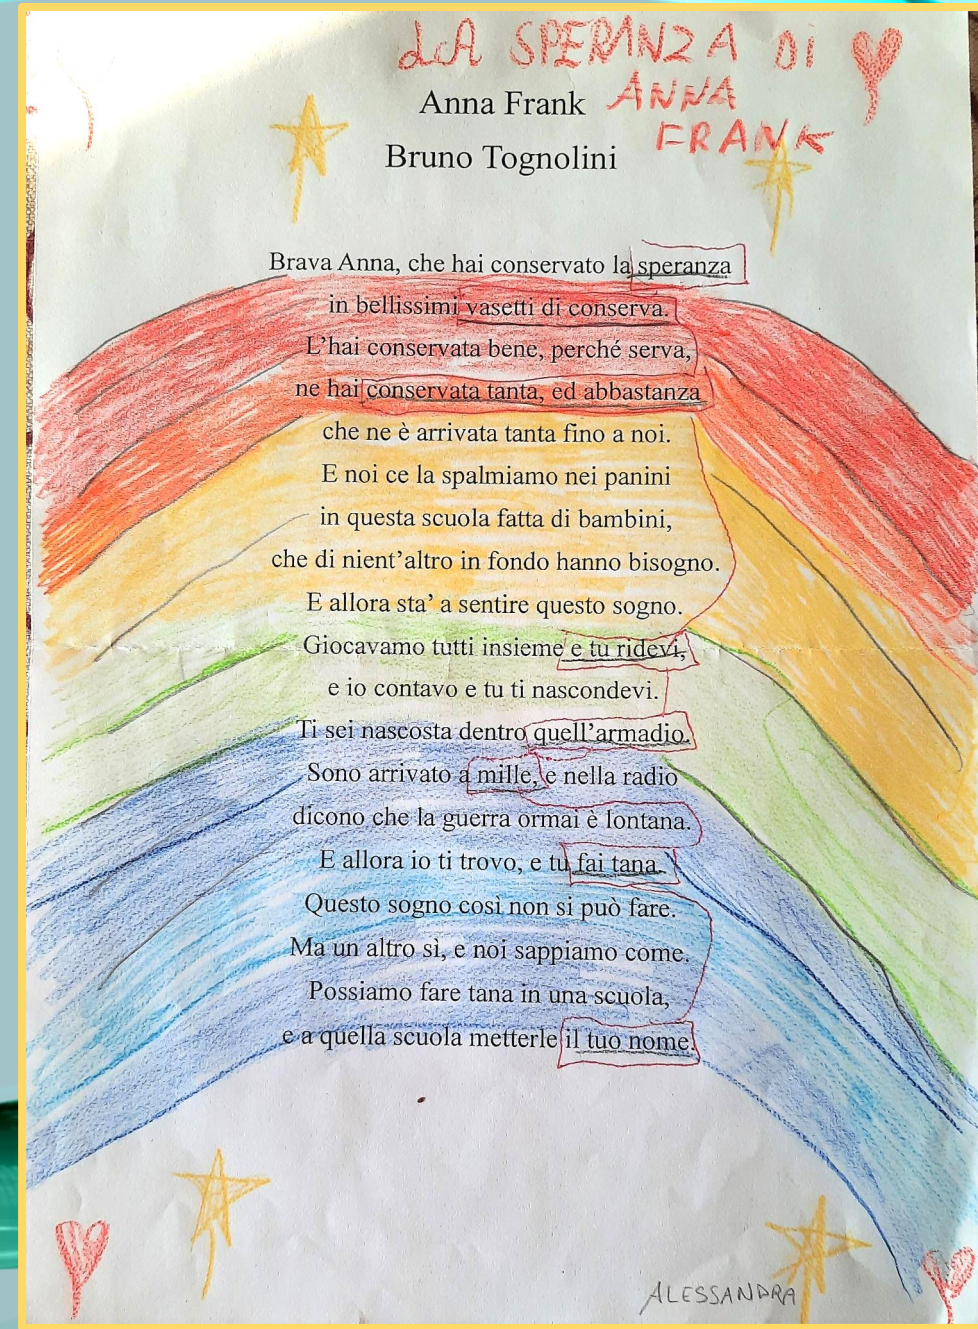 LA SPERANZA DI
ANNA
FRANK
Anna Frank
Bruno Tognolini
Brava Anna, che hai conservato la speranza
in bellissimi vasetti di conserva.
L'hai conservata bene, perché serva,
ne hai conservata tanta, ed abbastanza
che ne è arrivata tanta fino a noi.
E noi ce la spalmiamo nei panini
in questa scuola fatta di bambini,
che di nient'altro in fondo hanno bisogno.
E allora sta' a sentire questo sogno.
Giocavamo tutti insieme e tu ridevi,
e io contavo e tu ti nascondevi.
Ti sei nascosta dentro quell'armadio.
Sono arrivato a mille, e nella radio
dicono che la guerra ormai è lontana.
E allora io ti trovo, e tu fai tana.
Questo sogno così non si può fare.
Ma un altro sì, e noi sappiamo come.
Possiamo fare tana in una scuola,
e a quella scuola metterle il tuo nome.
ALESSANDRA